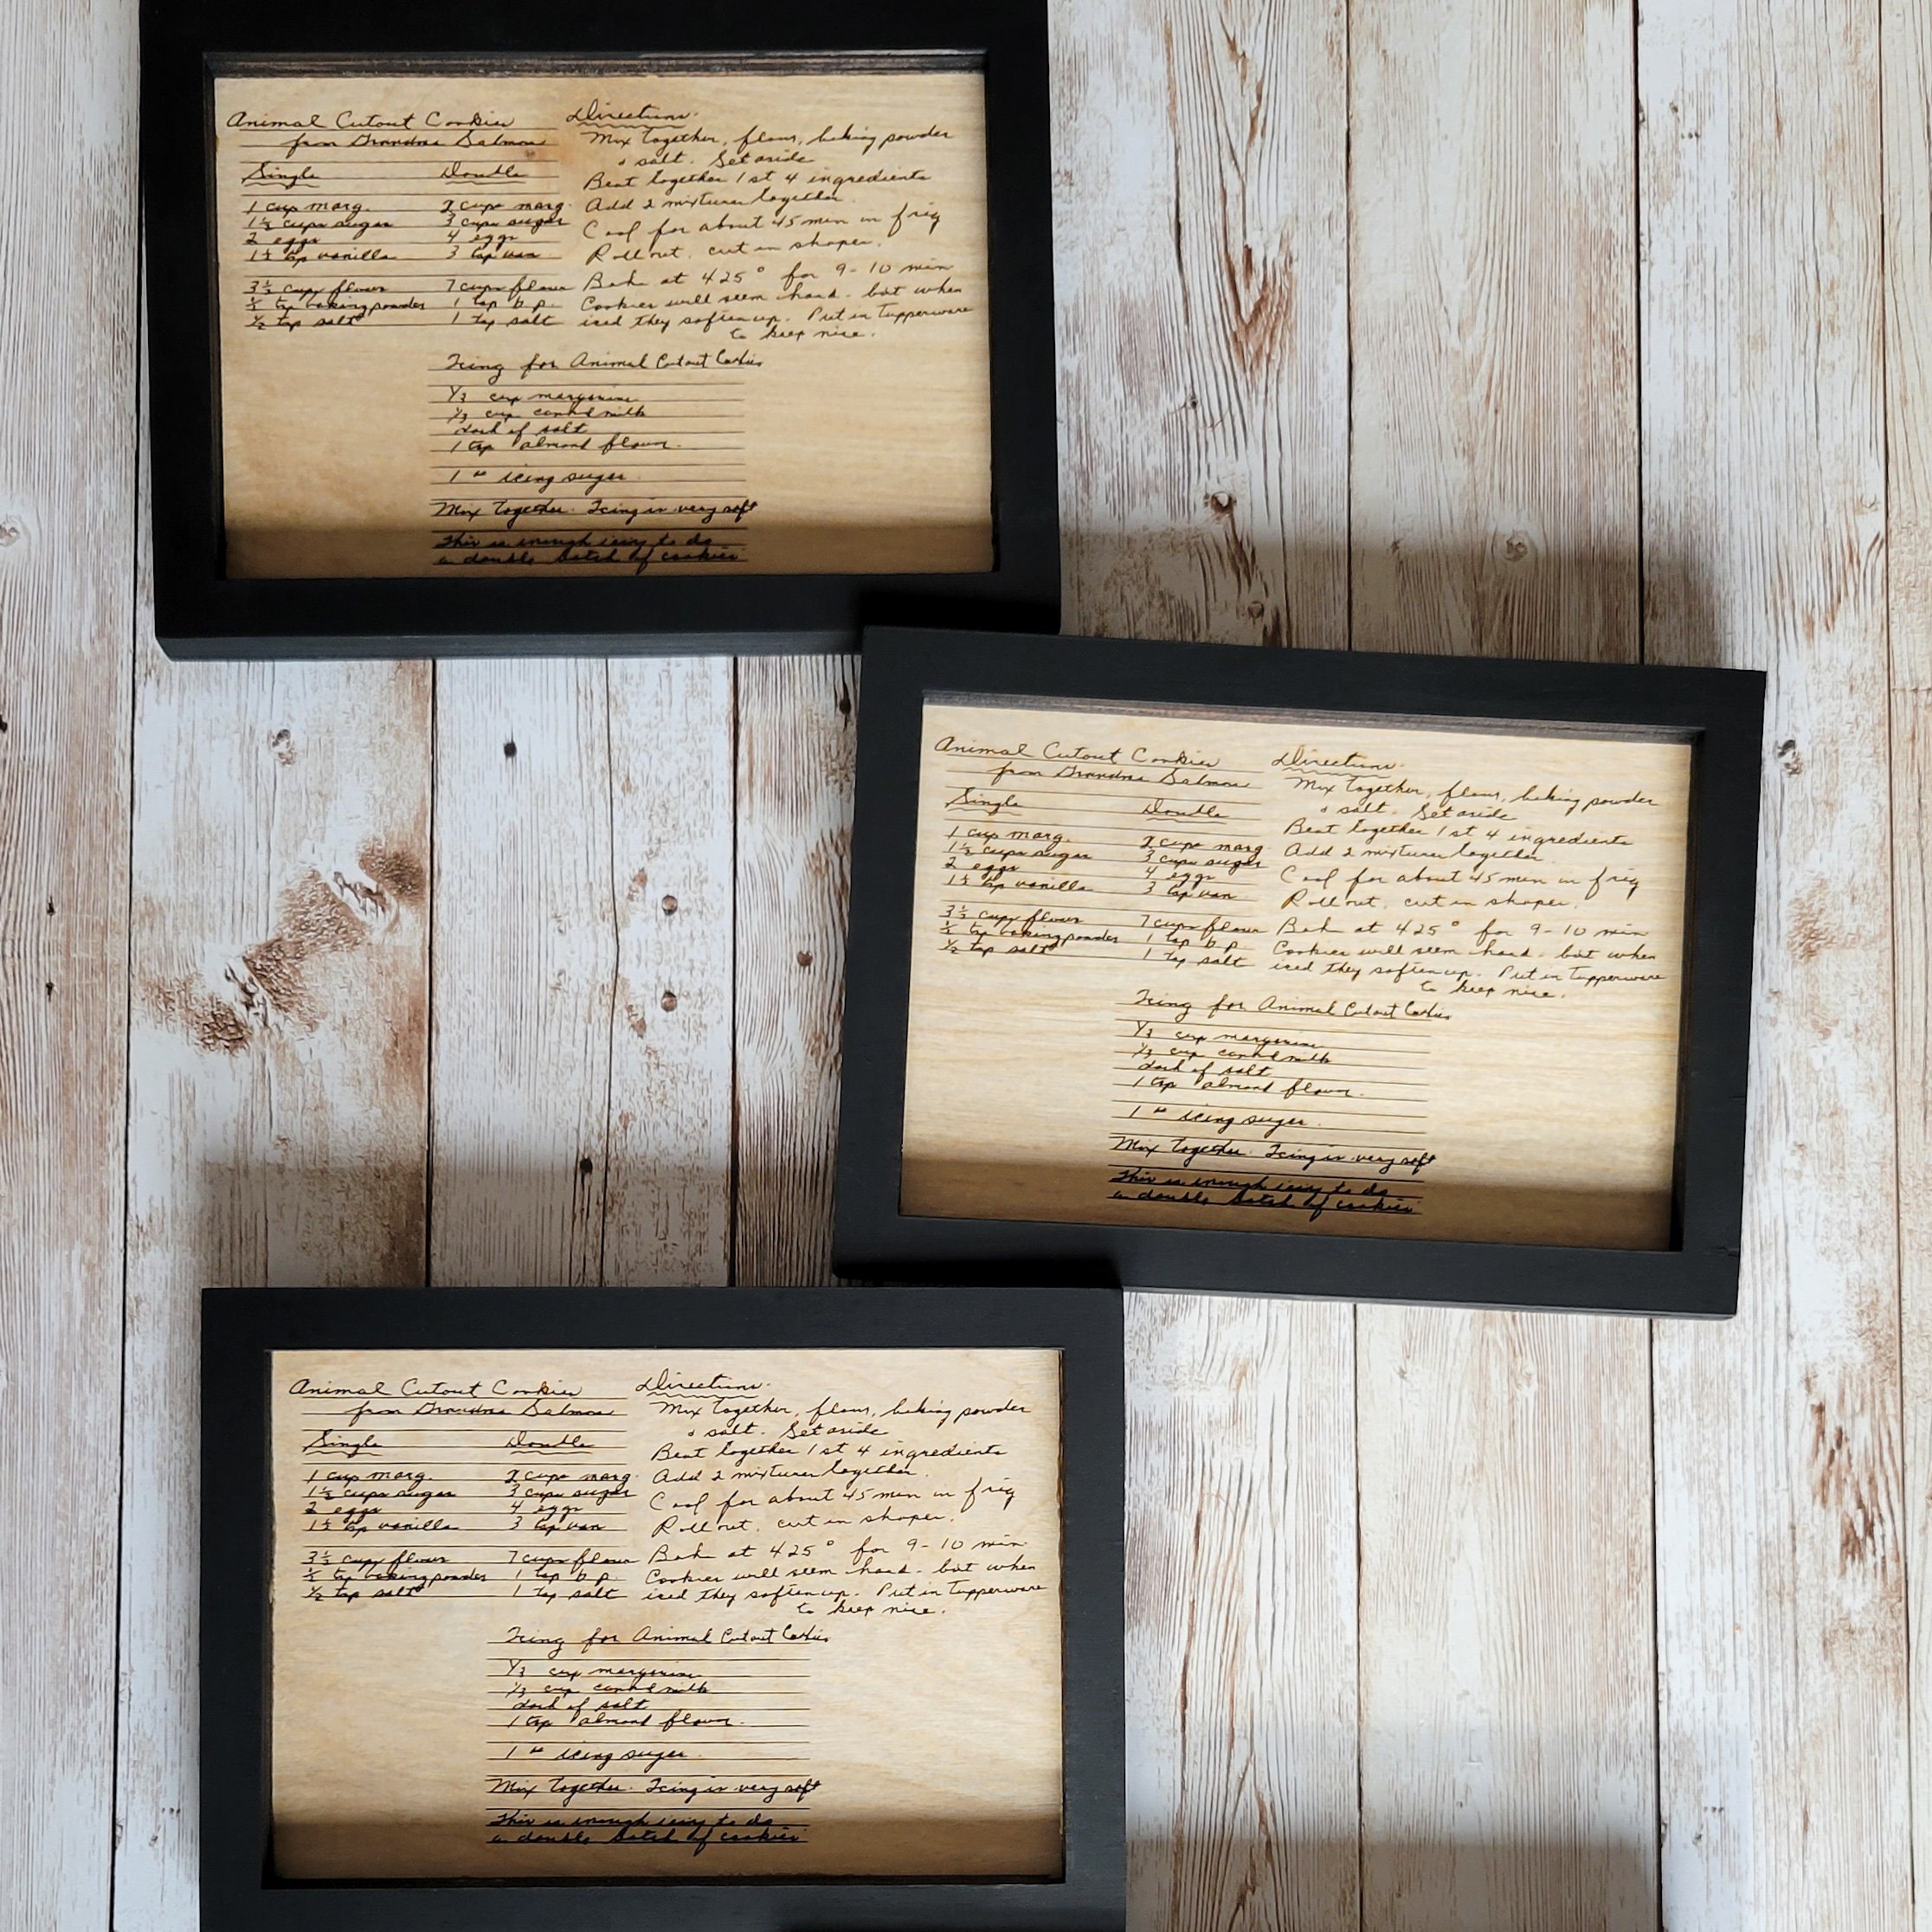 Animal Cutout Cookies
from Grandma Salmon
Single Double
1 cup marg. 2 cups marg.
1 1/2 cups sugar 3 cups sugar
2 eggs 4 eggs
1 1/2 tsp vanilla 3 tsp van
3 1/2 cups flour 7 cups flour
1/2 tsp baking powder 1 tsp b.p.
1/2 tsp salt 1 tsp salt
Directions.
Mix together, flour, baking powder
& salt. Set aside
Beat together 1st 4 ingredients
Add 2 mixtures together.
Cool for about 45 min in frig
Roll out, cut in shapes.
Bake at 425° for 9-10 min
Cookies will seem hard - but when
iced they soften up. Put in Tupperware
to keep nice.
Icing for Animal Cutout Cookies
1/3 cup margarine
1/3 cup canned milk
dash of salt
1 tsp almond flavor.
1 icing sugar
Mix together. Icing is very soft
This is enough icing to do
a double batch of cookies
Animal Cutout Cookies
from Grandma Salmon
Single Double
1 cup marg. 2 cups marg
1 1/2 cups sugar 3 cups sugar
2 eggs 4 eggs
1 1/2 tsp vanilla 3 tsp van
3 1/2 cups flour 7 cups flour
1/2 tsp baking powder 1 tsp b.p.
1/2 tsp salt 1 tsp salt
Directions.
Mix together, flour, baking powder
& salt. Set aside
Beat together 1st 4 ingredients
Add 2 mixtures together.
Cool for about 45 min in frig
Roll out, cut in shapes.
Bake at 425° for 9-10 min
Cookies will seem hard - but when
iced they soften up. Put in Tupperware
to keep nice.
Icing for Animal Cutout Cookies
1/3 cup margarine
1/3 cup canned milk
dash of salt
1 tsp almond flavor.
1 icing sugar
Mix together. Icing is very soft
This is enough icing to do
a double batch of cookies
Animal Cutout Cookies
from Grandma Salmon
Single Double
1 cup marg. 2 cups marg.
1 1/2 cups sugar 3 cups sugar
2 eggs 4 eggs
1 1/2 tsp vanilla 3 tsp van
3 1/2 cups flour 7 cups flour
1/2 tsp baking powder 1 tsp b.p.
1/2 tsp salt 1 tsp salt
Directions.
Mix together, flour, baking powder
& salt. Set aside
Beat together 1st 4 ingredients
Add 2 mixtures together.
Cool for about 45 min in frig
Roll out, cut in shapes.
Bake at 425° for 9-10 min
Cookies will seem hard - but when
iced they soften up. Put in Tupperware
to keep nice.
Icing for Animal Cutout Cookies
1/3 cup margarine
1/3 cup canned milk
dash of salt
1 tsp almond flavor.
1 icing sugar
Mix together. Icing is very soft
This is enough icing to do
a double batch of cookies